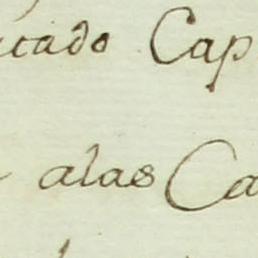 ctado Cap
alas Ca